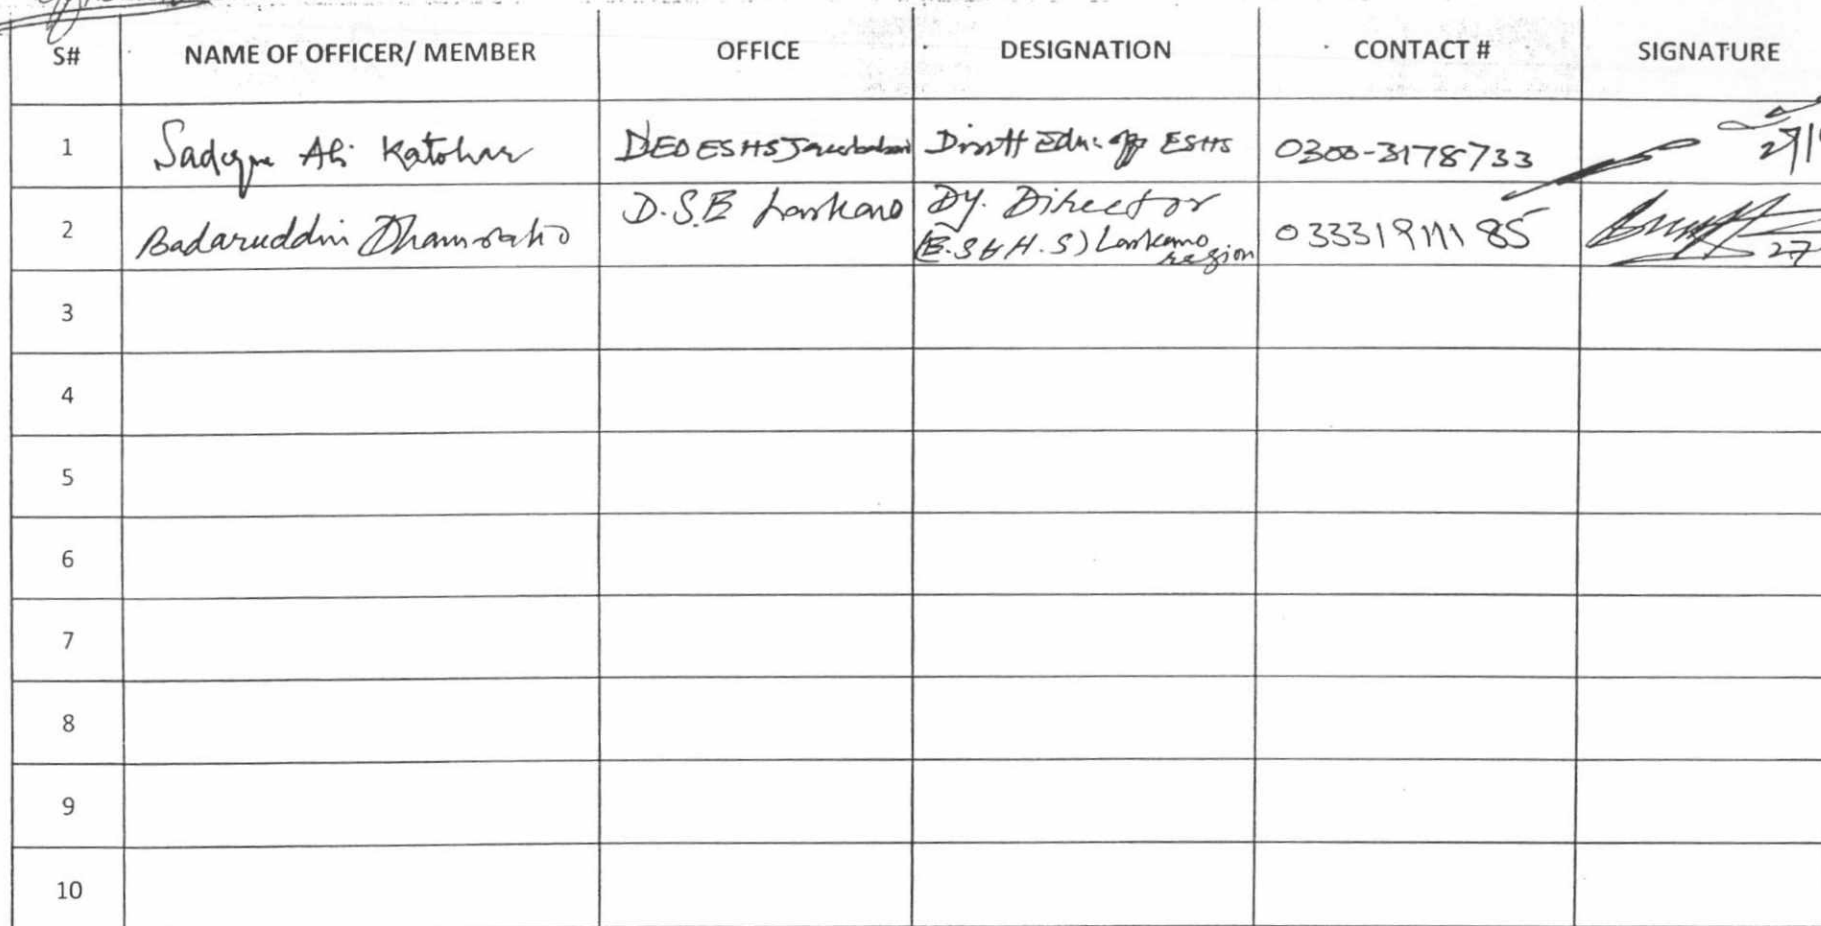 S# NAME OF OFFICER/ MEMBER OFFICE DESIGNATION CONTACT # SIGNATURE
1 Sadique Ali Katohar DEO ESHS Jacobabad Distt Edu: off ESHS 0300-3178733
2 Badaruddin Dhamraho D.S.E Larkano Dy. Director
(E.S & H.S) Larkano region 03331911185 27
3
4
5
6
7
8
9
10